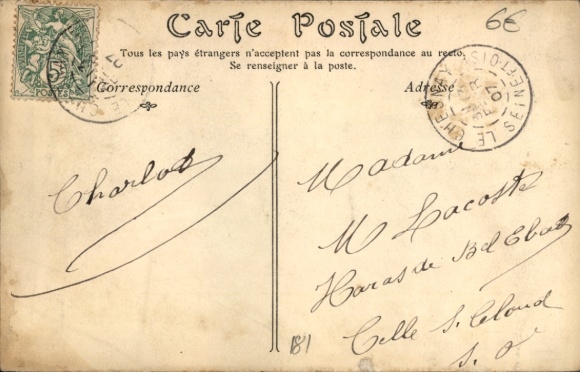 Carte Postale
6€
Tous les pays étrangers n'acceptent pas la correspondance au recto.
Se renseigner à la poste.
Correspondance
Adresse
LE CHESNAY
SEINE-ET-OISE
07
5
POSTES
Charlot
Madame
M Lacoste
Haras de Bel Ebat
Celle St Cloud
S. O
181